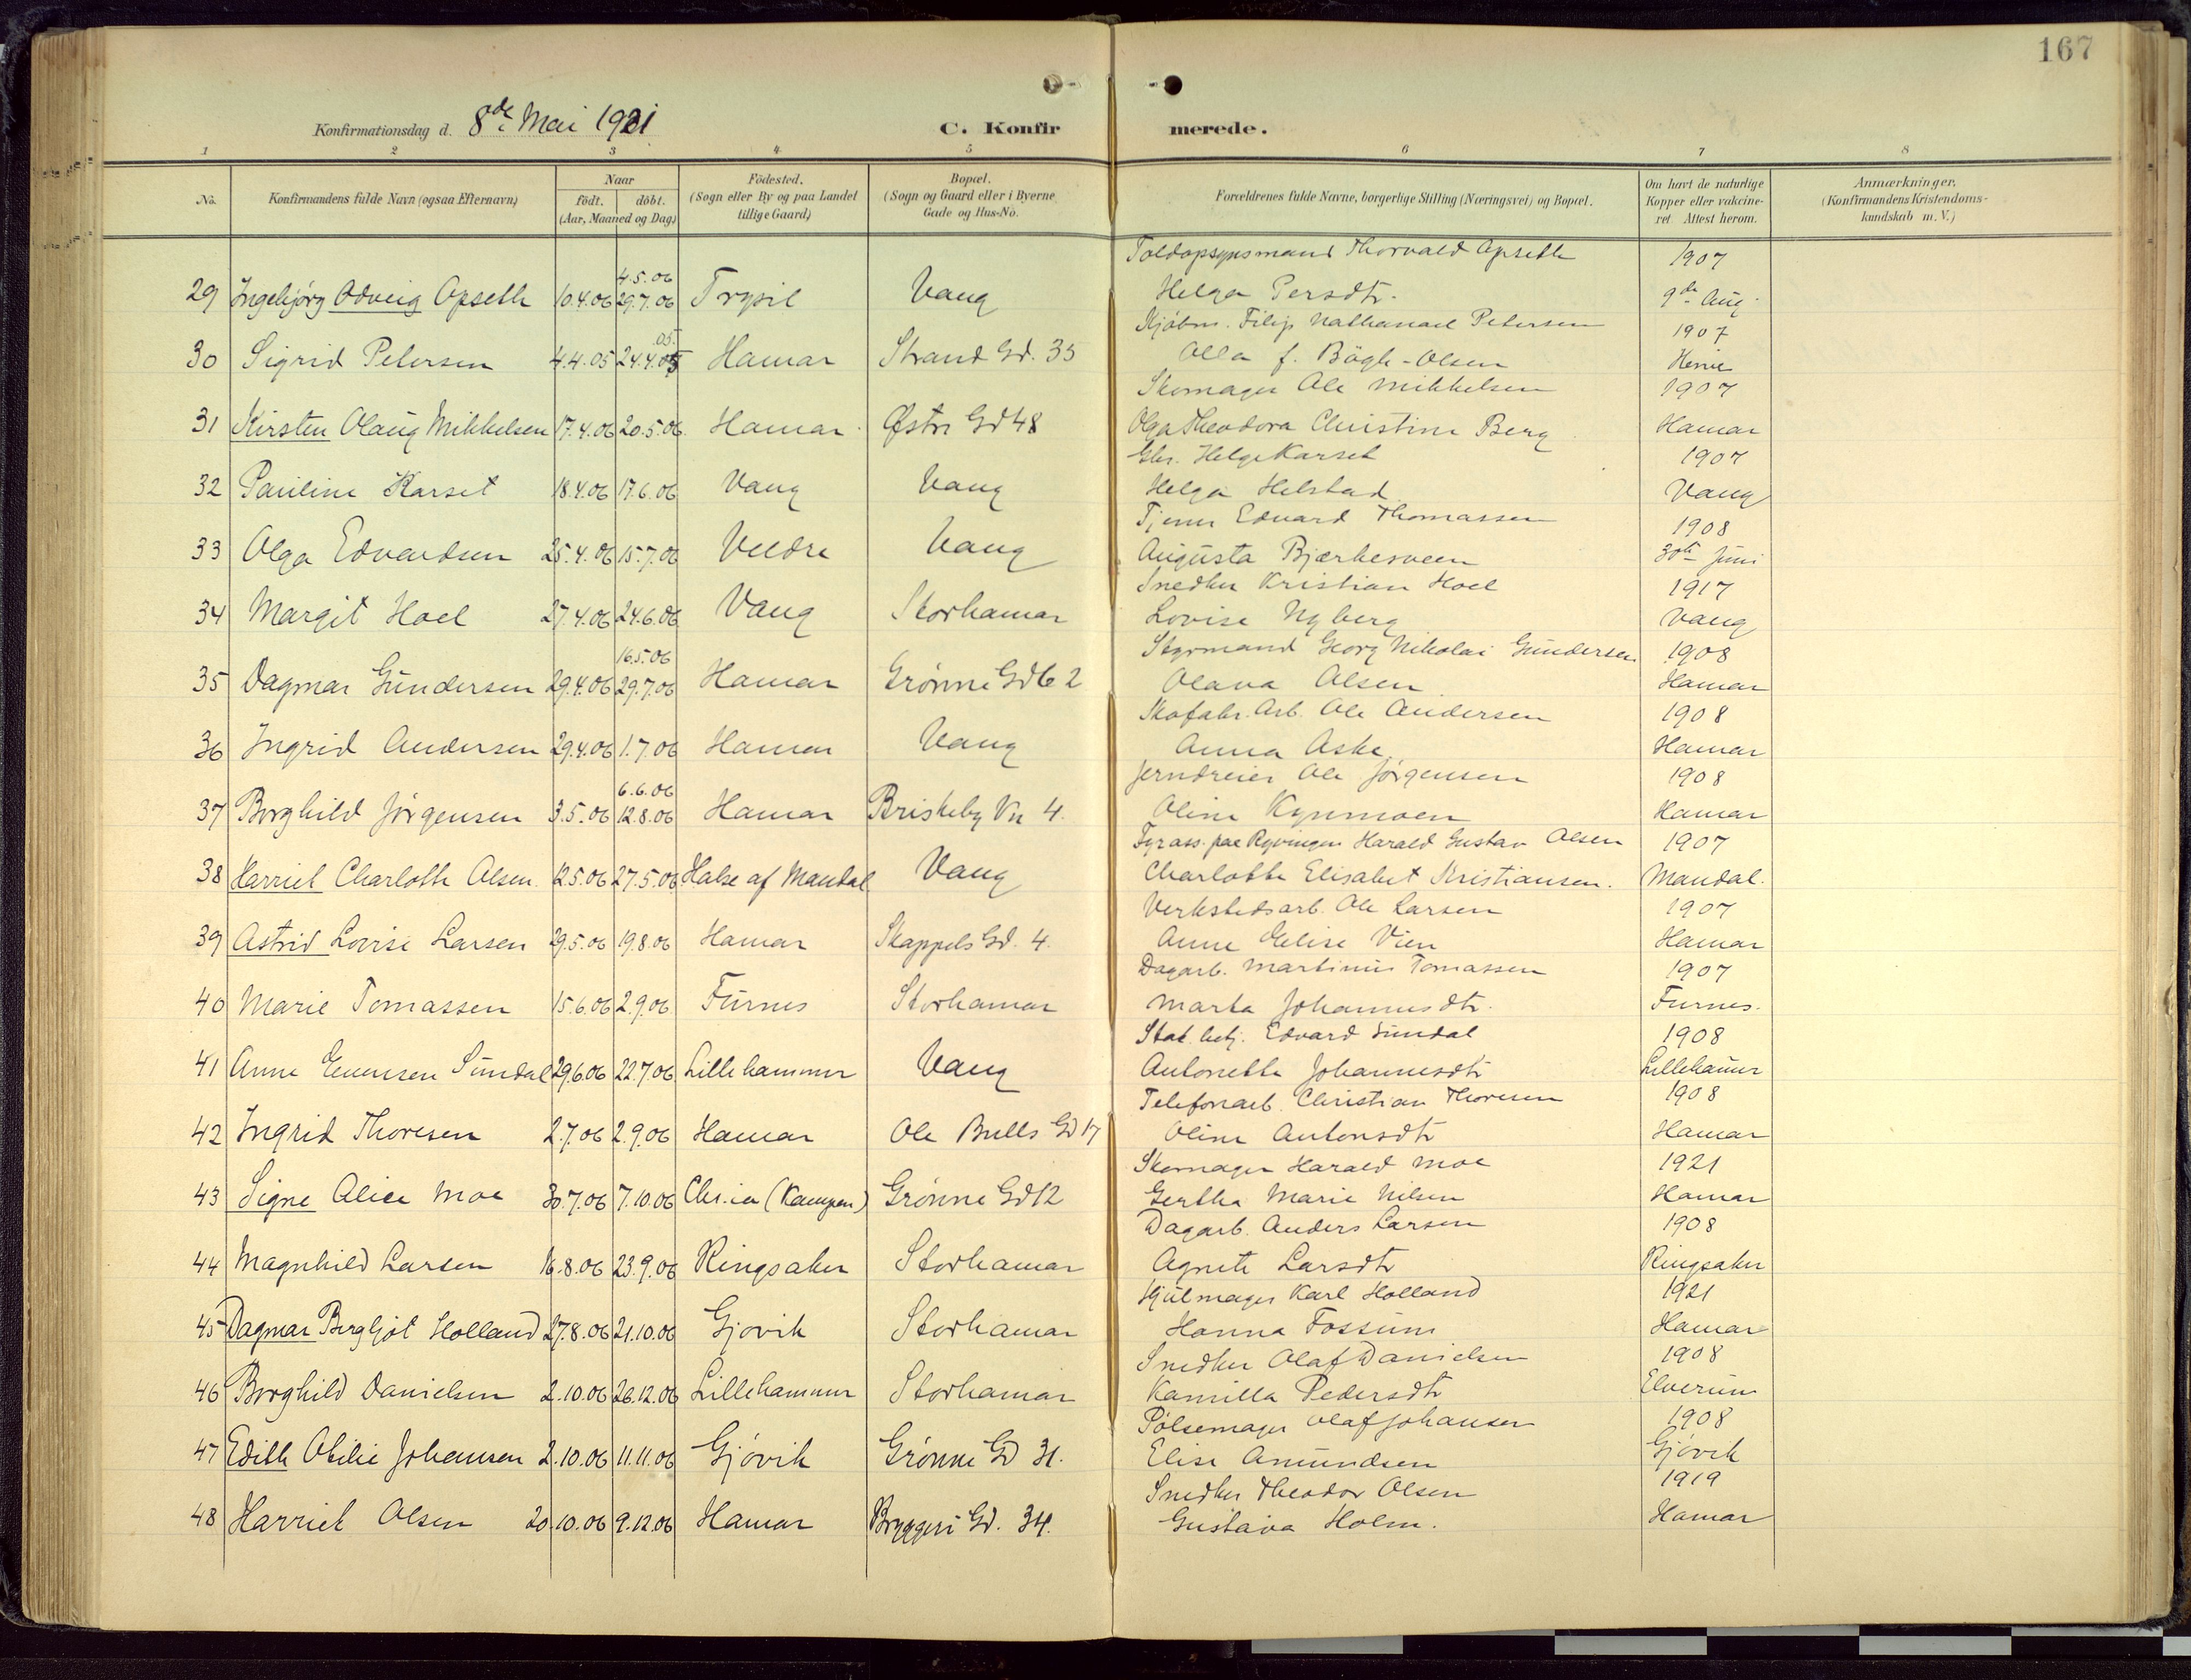 167
Konfirmationsdag d. 8de Mai 1921
C. Konfir merede.
1 2 3 4 5 6 7 8
No. Konfirmandens fulde Navn (ogsaa Efternavn) Naar födt. döbt. (Aar, Maaned og Dag) Födested. (Sogn eller By og paa Landet tillige Gaard) Bopæl. (Sogn og Gaard eller i Byerne Gade og Hus-No. Forældrenes fulde Navne, borgerlige Stilling (Næringsvei) og Bopæl. Om havt de naturlige Kopper eller vakcineret. Attest herom. Anmærkninger. (Konfirmandens Kristendomskundskab m. V.)
Toldopsynsmand Thorvald Opseth 1907
29 Ingebjörg Odveig Opseth 10.4.06 4.5.06 29.7.06 Trysil Vang Helga Persdtr. 9de Aug.
Kjöbm. Filip Nathanael Petersen 1907
30 Sigrid Petersen 4.4.05 24.4.05 05. Hamar Strand Gd. 35 Olla f. Bögh-Olsen
Skomager Ole Mikkelsen 1907
31 Kirsten Olaug Mikkelsen 17.4.06 20.5.06 Hamar Østre Gd 48 Olga Theodora Christine Berg Hamar
Gbr. Helge Karset 1907
32 Pauline Karset 18.4.06 17.6.06 Vang Vang Helga Helstad Vang
Tjener Edvard Thomassen 1908
33 Olga Edvardsen 25.4.06 15.7.06 Veldre Vang Augusta Bjærkesveen 30te Juni
Snedker Kristian Hoel 1917
34 Margit Hoel 27.4.06 24.6.06 Vang Storhamar Lovise Nyberg Vang
Styrmand Georg Nikolai Gundersen 1908
35 Dagmar Gundersen 29.4.06 16.5.06 29.7.06 Hamar Grönne Gd 62 Olava Olsen Hamar
Skofabr. Arb. Ole Andersen 1908
36 Ingrid Andersen 29.4.06 1.7.06 Hamar Vang Anna Aske Hamar
Jerndreier Ole Jörgensen 1908
37 Borghild Jörgensen 3.5.06 6.6.06 12.8.06 Hamar Briskeby Vn 4. Oline Kynmoen Hamar
Fyrass. paa Ryvingen Harald Gustav Olsen 1907
38 Harriet Charlotte Olsen. 12.5.06 27.5.06 Halse af Mandal Vang Charlotte Elisabet Kristiansen. Mandal.
Verkstedsarb. Ole Larsen 1907
39 Astrid Lovise Larsen 29.5.06 19.8.06 Hamar Skappels Gd. 4. Anne Elise Vien Hamar
Dagarb. Martinus Tomassen 1907
40 Marie Tomassen 15.6.06 2.9.06 Furnes Storhamar Marta Johannesdtr. Furnes.
Stat. betj. Edvard Sundal 1908
41 Anne Evensen Sundal 29.6.06 22.7.06 Lillehammer Vang Antonette Johannesdtr Lillehamer
Telefonarb. Christian Thoresen 1908
42 Ingrid Thoresen 2.7.06 2.9.06 Hamar Ole Bulls Gd 17 Oline Antonsdtr Hamar
Skomager Harald Moe 1921
43 Signe Alice Moe 30.7.06 7.10.06 Chr.ia (Kampen) Grönne Gd 12 Gertha Marie Nilsen Hamar
Dagarb. Anders Larsen 1908
44 Magnhild Larsen 16.8.06 23.9.06 Ringsaker Storhamar Agnete Larsdtr Ringsaker
Hjulmager Karl Holland 1921
45 Dagmar Bergljot Holland 27.8.06 21.10.06 Gjövik Storhamar Hanna Fossum Hamar
Snedker Olaf Danielsen 1908
46 Borghild Danielsen 2.10.06 26.12.06 Lillehammer Storhamar Kamilla Pedersdtr Elverum
Pölsemager Olaf Johansen 1908
47 Edith Otilie Johansen 2.10.06 11.11.06 Gjövik Grönne Gd 31. Elise Amundsen Gjövik
Snedker Theodor Olsen 1919
48 Harriet Olsen 20.10.06 9.12.06 Hamar Bryggeri Gd. 34. Gustava Holm. Hamar